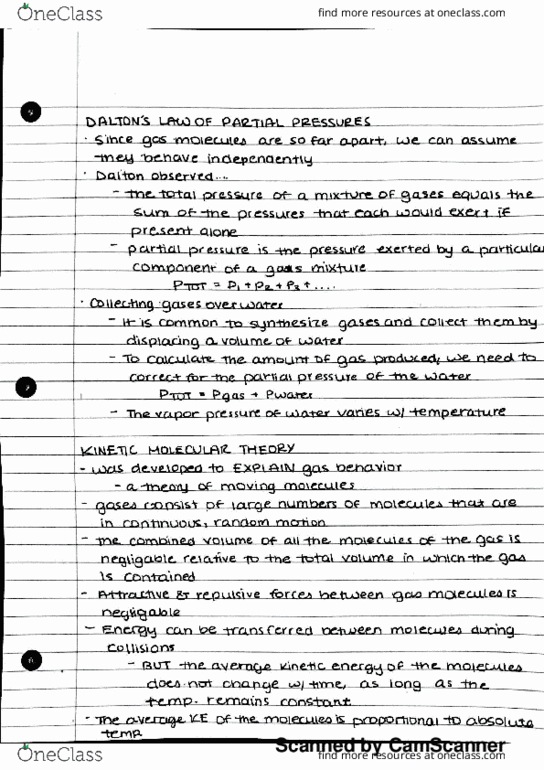 OneClass
find more resources at oneclass.com
DALTON'S LAW OF PARTIAL PRESSURES
· Since gas molecules are so far apart, we can assume
they behave independently
· Dalton observed...
- the total pressure of a mixture of gases equals the
sum of the pressures that each would exert if
present alone
- partial pressure is the pressure exerted by a particular
component of a gas mixture
PTOT = P1 + P2 + P3 + ....
· Collecting gases over water
- It is common to synthesize gases and collect them by
displacing a volume of water
- To calculate the amount of gas produced, we need to
correct for the partial pressure of the water
PTOT = Pgas + Pwater
- The vapor pressure of water varies w/ temperature
KINETIC MOLECULAR THEORY
- was developed to EXPLAIN gas behavior
- a theory of moving molecules
- gases consist of large numbers of molecules that are
in continuous, random motion
- the combined volume of all the molecules of the gas is
negligable relative to the total volume in which the gas
is contained
- Attractive & repulsive forces between gas molecules is
negligable
- Energy can be transferred between molecules during
collisions
- BUT the average kinetic energy of the molecules
does not change w/ time, as long as the
temp. remains constant
- The average KE of the molecules is proportional to absolute
temp
Scanned by CamScanner
OneClass
find more resources at oneclass.com